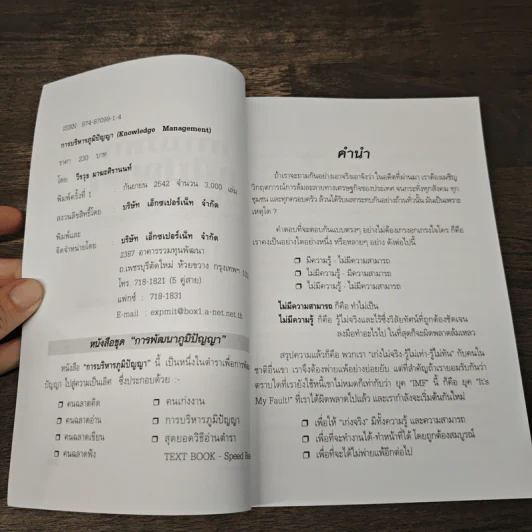 ISBN 974-87099-1-4
การบริหารภูมิปัญญา (Knowledge Management)
ราคา 230 บาท
โดย วีรวุธ มาฆะศิรานนท์
พิมพ์ครั้งที่ 1 : กันยายน 2542 จำนวน 3,000 เล่ม
สงวนลิขสิทธิ์โดย : บริษัท เอ็กซเปอร์เน็ท จำกัด
พิมพ์และ
จัดจำหน่ายโดย : บริษัท เอ็กซเปอร์เน็ท จำกัด
2387 อาคารรวมทุนพัฒนา
ถ.เพชรบุรีตัดใหม่ ห้วยขวาง กรุงเทพฯ
โทร. 718-1821 (5 คู่สาย)
แฟกซ์ : 718-1831
E-mail : expmit@box1.a-net.net.th
หนังสือชุด "การพัฒนาภูมิปัญญา"
หนังสือ "การบริหารภูมิปัญญา" นี้ เป็นหนึ่งในตำราเพื่อการพัฒ
ปัญญา ไปสู่ความเป็นเลิศ ซึ่งประกอบด้วย :-
❒ คนฉลาดคิด ❒ คนเก่งงาน
❒ คนฉลาดอ่าน ❒ การบริหารภูมิปัญญา
❒ คนฉลาดเขียน ❒ สุดยอดวิธีอ่านตำรา
❒ คนฉลาดฟัง TEXT BOOK - Speed Rea
คำนำ
ถ้าเราจะถามกันอย่างเอาจริงเอาจังว่า ในอดีตที่ผ่านมา เราต้องเผชิญ
วิกฤตการณ์การล้มละลายทางเศรษฐกิจของประเทศ จนกระทั่งทุกสังคม ทุก
ชุมชน และทุกครอบครัว ล้วนได้รับผลกระทบกันอย่างถ้วนทั่วนั้น มันเป็นเพราะ
เหตุใด ?
คำตอบที่จะตอบกันแบบตรงๆ อย่างไม่ต้องเกรงอกเกรงใจใคร ก็คือ
เราคงเป็นอย่างใดอย่างหนึ่ง หรือหลายๆ อย่าง ดังต่อไปนี้
❒ มีความรู้ - ไม่มีความสามารถ
❒ ไม่มีความรู้ - มีความสามารถ
❒ ไม่มีความรู้ - ไม่มีความสามารถ
ไม่มีความสามารถ ก็คือ ทำไม่เป็น
ไม่มีความรู้ ก็คือ รู้ไม่จริงและไร้ซึ่งวิสัยทัศน์ที่ถูกต้องชัดเจน
ลงมือทำอะไรไป ในที่สุดก็จะผิดพลาดล้มเหลว
สรุปความแล้วก็คือ พวกเรา "เก่งไม่จริง-รู้ไม่เท่า-รู้ไม่ทัน" กับคนใน
ชาติอื่นเขา เราจึงต้องพ่ายแพ้อย่างย่อยยับ แต่ที่สำคัญถ้าเรายอมรับกันว่า
ตราบใดที่เรายังใช้หนี้เขาไม่หมดก็เท่ากับว่า ยุค "IMF" นี้ ก็คือ ยุค "It's
My Fault!" ที่เราได้ผิดพลาดไปแล้ว และเรากำลังจะเริ่มต้นกันใหม่
❒ เพื่อให้ "เก่งจริง" มีทั้งความรู้ และความสามารถ
❒ เพื่อที่จะทำงานได้-ทำหน้าที่ได้ โดยถูกต้องสมบูรณ์
❒ เพื่อที่จะได้ไม่พ่ายแพ้อีกต่อไป